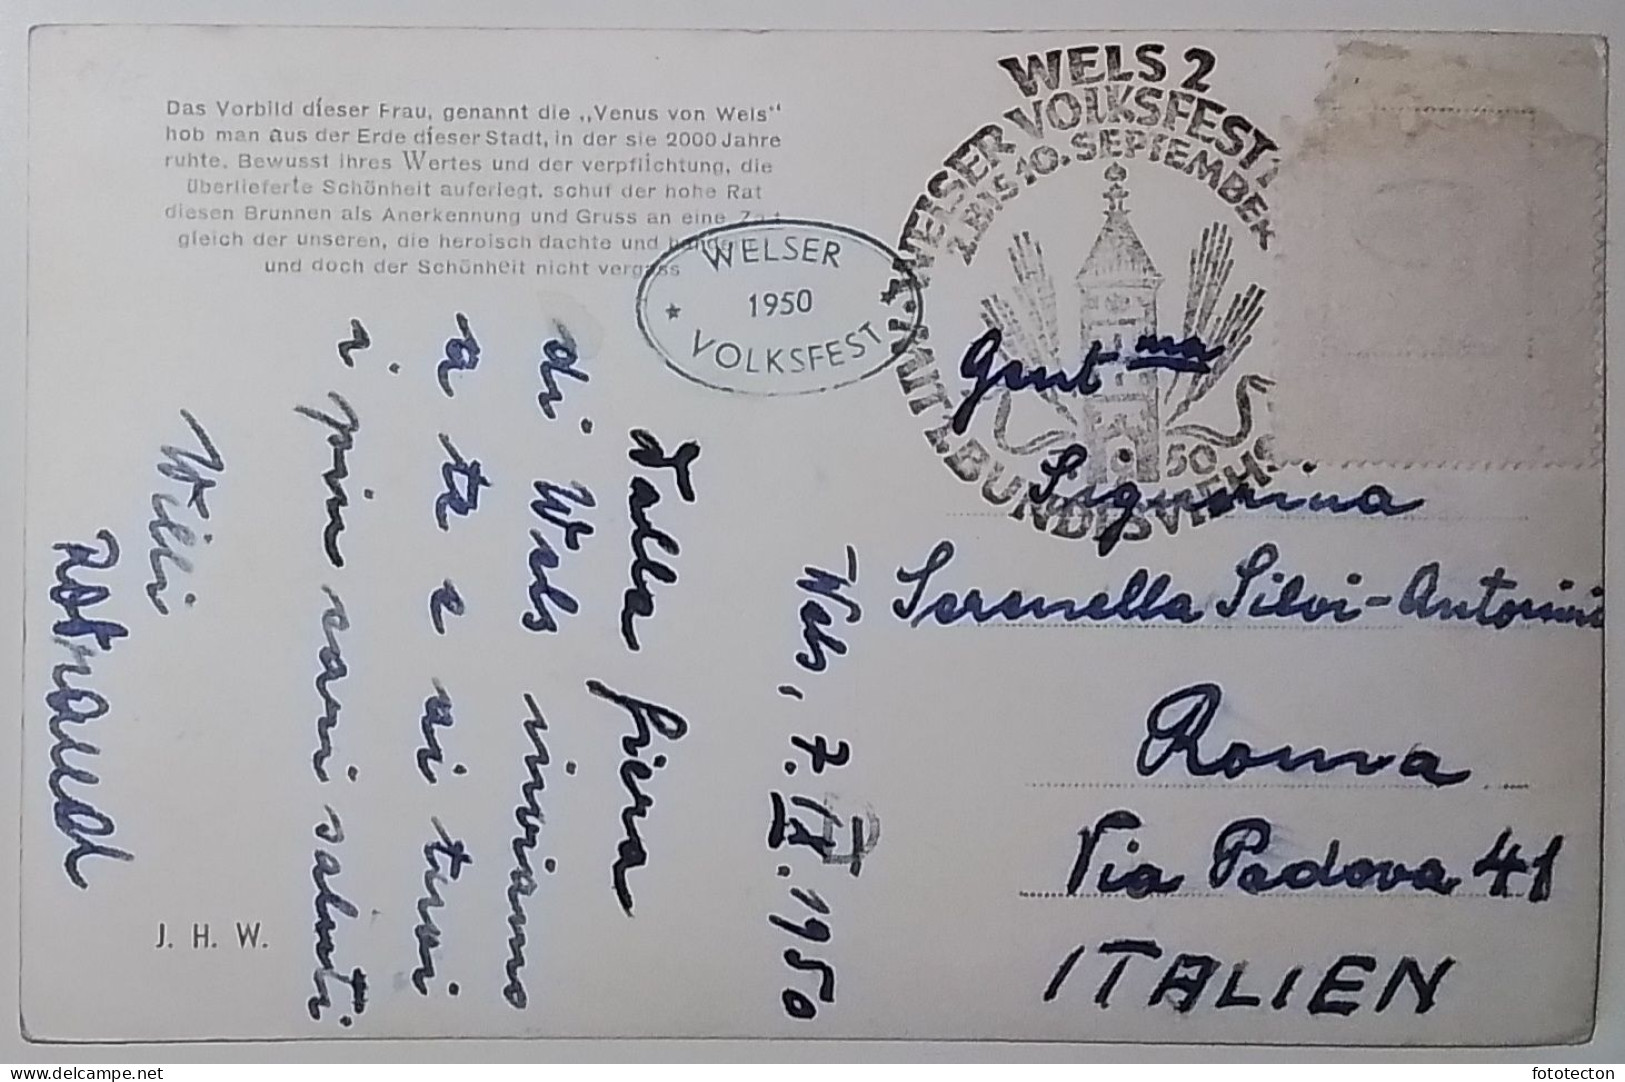 Das Vorbild dieser Frau, genannt die „Venus von Wels“
hob man aus der Erde dieser Stadt, in der sie 2000 Jahre
ruhte. Bewusst ihres Wertes und der verpflichtung, die
überlieferte Schönheit auferlegt, schuf der hohe Rat
diesen Brunnen als Anerkennung und Gruss an eine Zeit
gleich der unseren, die heroisch dachte und
und doch der Schönheit nicht vergass
WELSER
1950
VOLKSFEST
WELS 2
WELSER VOLKSFEST
2. BIS 10. SEPTEMBER
MIT 1. BUNDESVIEHS
50
Wels, 7. IX. 1950
Dalla fiera
di Wels inviamo
a te e ai tuoi
i più cari saluti
Willi
J. H. W.
Gent ma
Signorina
Serenella Silvi-Antonini
Roma
Via Padova 41
ITALIEN
fototecton